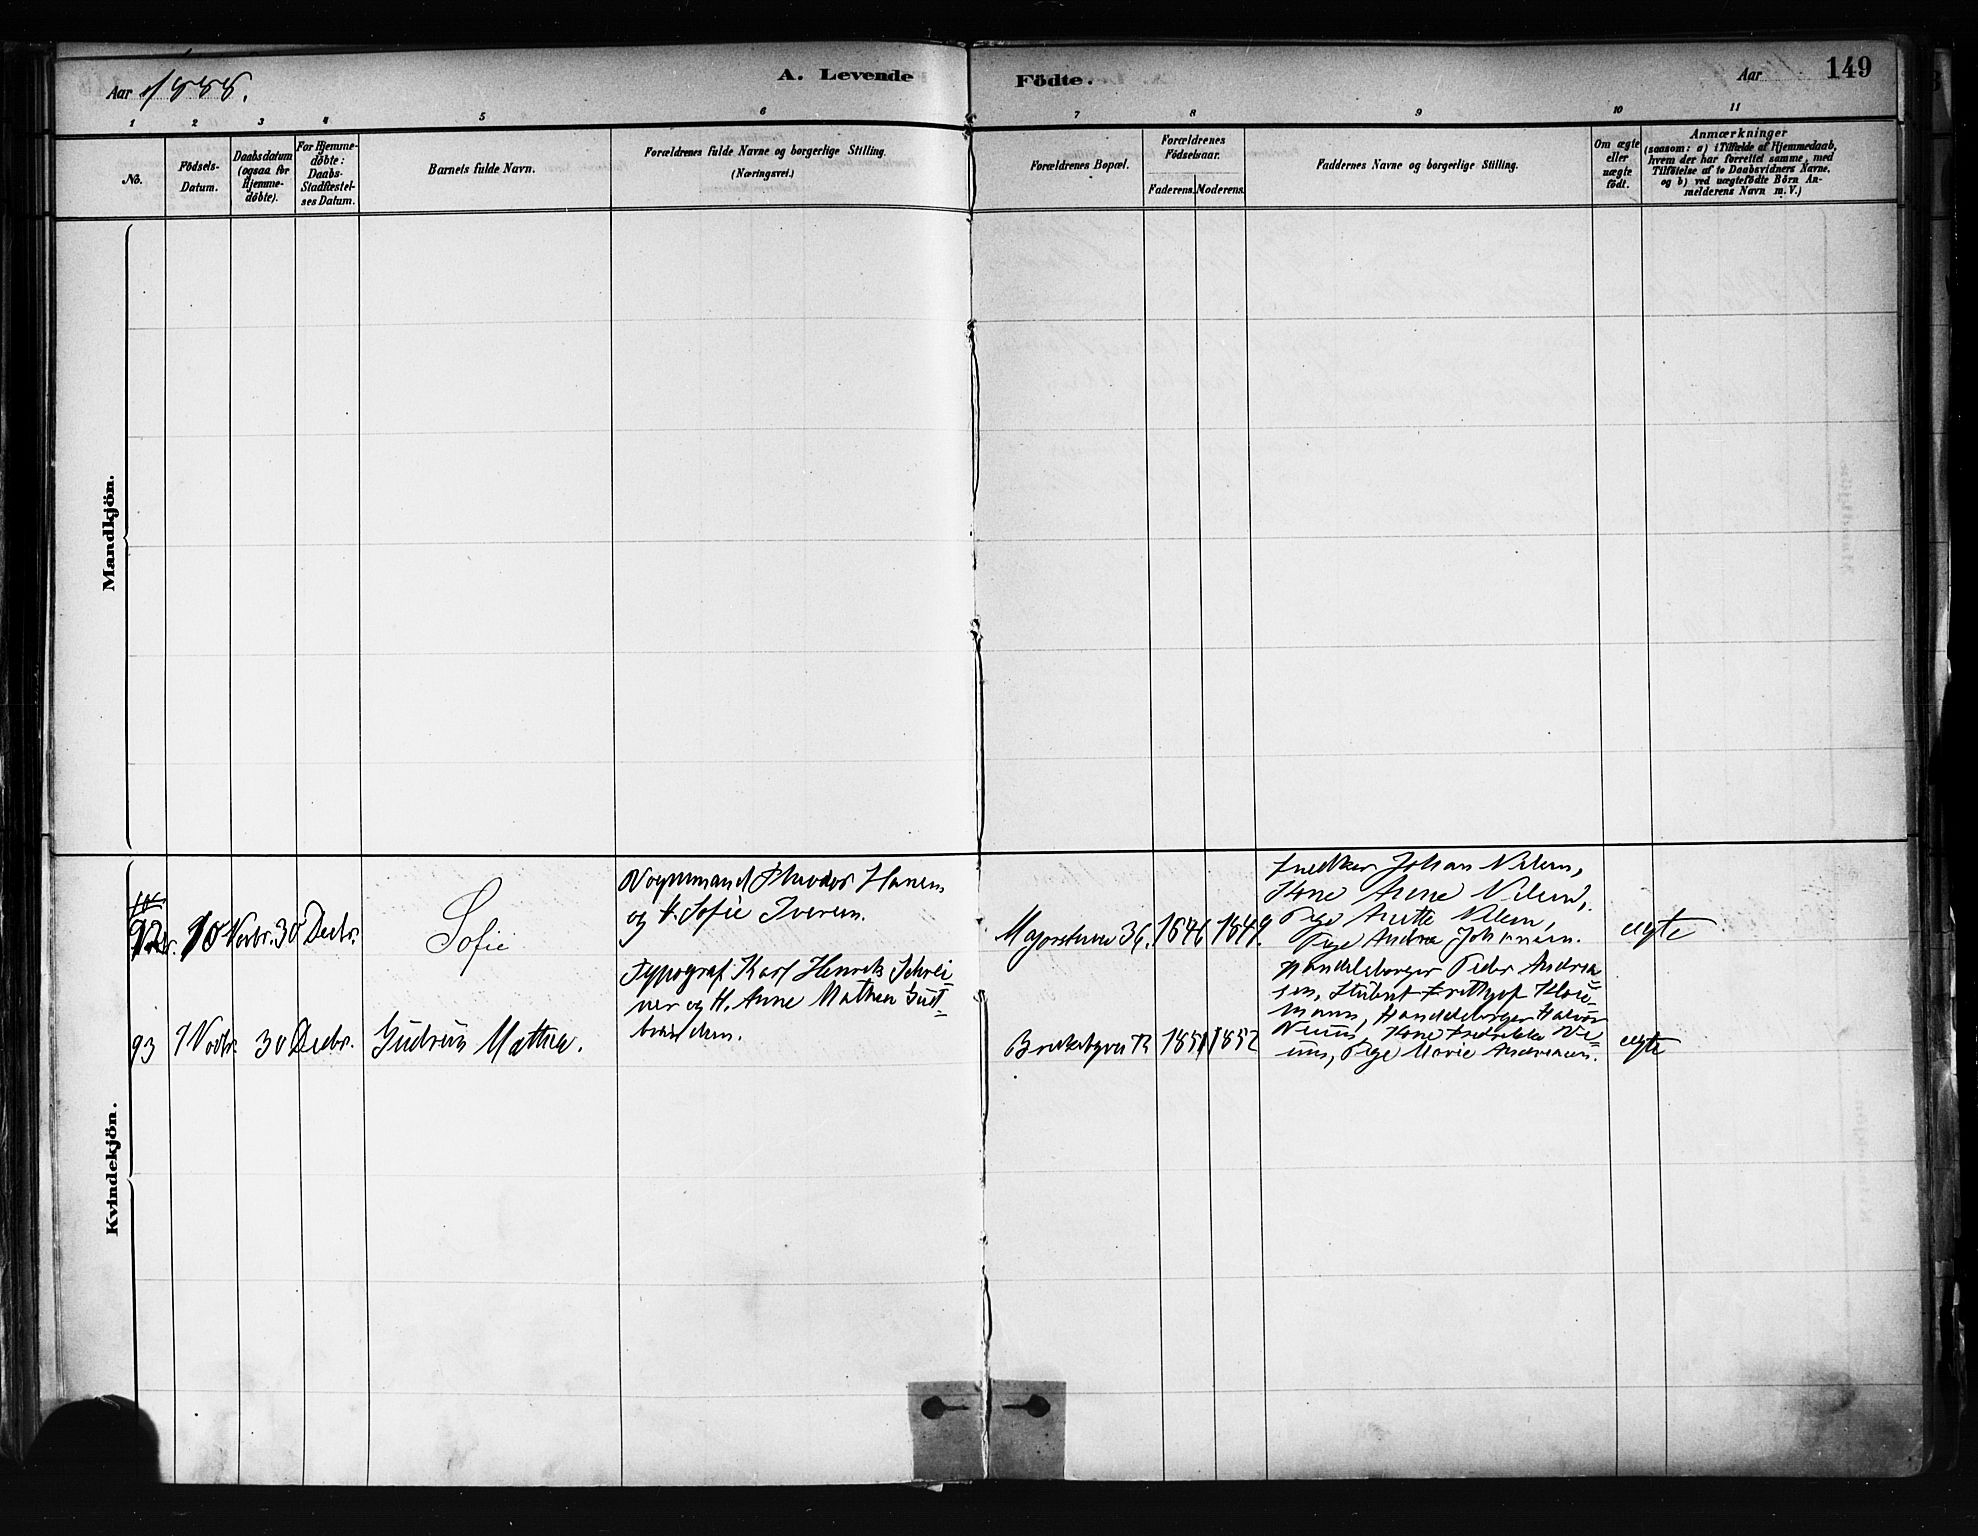 Aar 1888.
A. Levende
Födte.
Aar
149
1 2 3 4 5 6 7 8 9 10 11
No.
Födsels-
Datum.
Daabsdatum
(ogsaa for
Hjemme-
döbte).
For Hjemme-
döbte:
Daabs-
Stadfæstel-
ses Datum.
Barnets fulde Navn.
Forældrenes fulde Navne og borgerlige Stilling.
(Næringsvei.)
Forældrenes Bopæl.
Forældrenes
Födselsaar.
Faderens. Moderens.
Faddernes Navne og borgerlige Stilling.
Om ægte
eller
uægte
födt.
Anmærkninger
(saasom: a) i Tilfælde af Hjemmedaab,
hvem der har forrettet samme, med
Tilföielse af to Daabsvidners Navne,
og b) ved uægtefödte Börn An-
melderens Navn m. V.)
Mandkjön.
Kvindekjön.
92
10 Novbr.
30 Decbr.
Sofie
Vognmand Theodor Hansen
og H. Sofie Iversen.
Majorstuen 36.
1846
1849.
Snedker Johan Nilsen,
Kone Anne Nilsen,
Pige Anette Nilsen,
Pige Andrea Johansen.
ægte
93
7 Novbr.
30 Decbr.
Gudrun Mathea.
Typograf Karl Henrik Schrei-
ner og H. Anne Mathea Gud-
brandsen.
1851
1852
Handelsborger Peder Andrea
sen, Student Frithjof Klou-
mann, Handelsborger Halvor
Kone Fredrikke
Pige Marie Andreasen.
ægte